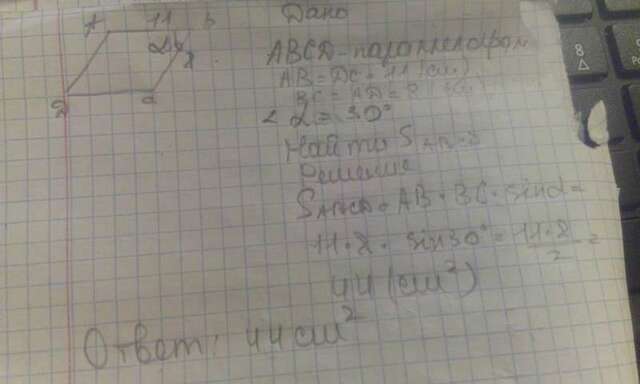 A 11 B
α
8
D C
Дано
ABCD - параллелограм
AB = DC = 11 (см)
BC = AD = 8 (см)
∠ α = 30°
Найти S
Решение
S ABCD = AB · BC · sin α =
11 · 8 · sin 30° = 11 · 8 / 2 =
44 (см²)
Ответ: 44 см²
8